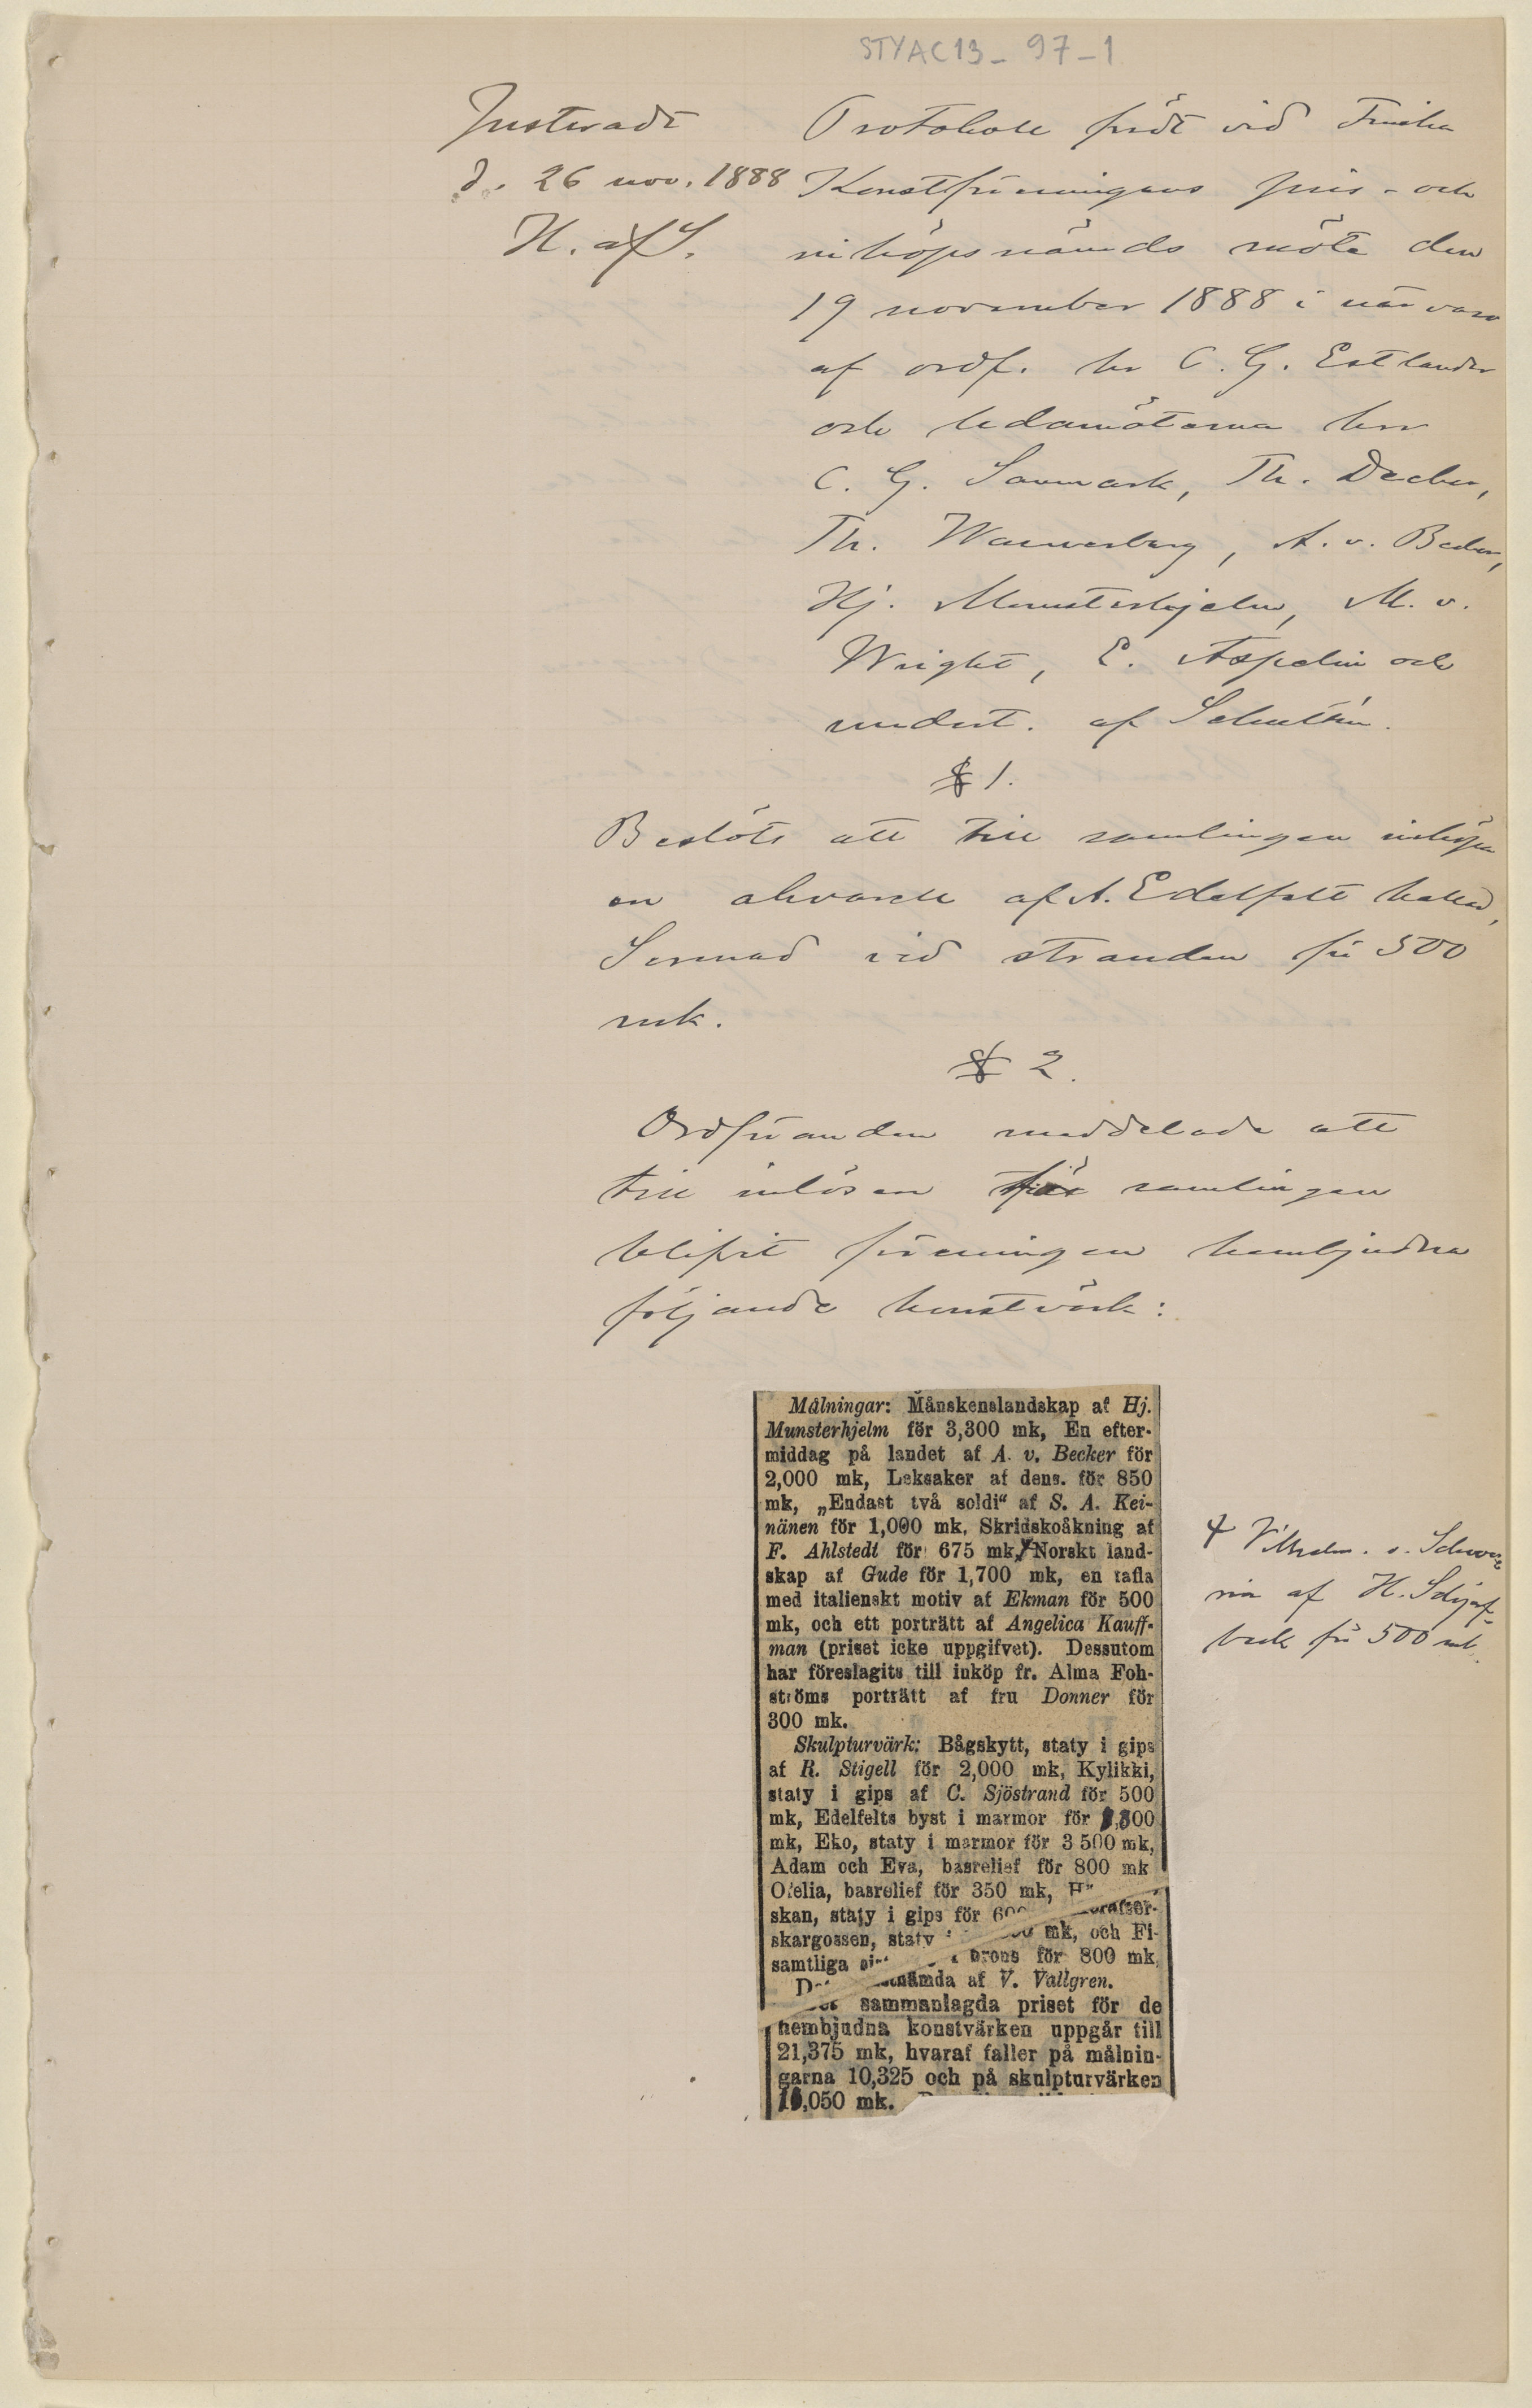 STYAC13-97-1
Justeradt
d. 26 nov. 1888
H. af S.
Protokoll fördt vid Finska
Konstföreningens pris- och
inköpsnämnds möte den
19 november 1888 i närvaro
af ordf. hr C. G. Estlander
och ledamöterna hrr
C. G. Sanmark, Th. Decker,
Th. Waenerberg, A. v. Becker,
Hj. Munsterhjelm, M. v.
Wright, E. Aspelin och
undert. af Schultén.
§ 1.
Beslöts att till samlingen inköpa
en akvarell af A. Edelfelt kallad,
vid stranden för 500
mk.
§ 2.
Ordföranden meddelade att
till inlösen för samlingen
blifvit föreningen hembjudna
följande konstvärk:
Målningar: Månskenslandskap af Hj.
Munsterhjelm för 3,300 mk, En efter-
middag på landet af A. v. Becker för
2,000 mk, Leksaker af dens. för 850
mk, „Endast två soldi“ af S. A. Kei-
nänen för 1,000 mk, Skridskoåkning af
F. Ahlstedt för 675 mk, Norskt land-
skap af Gude för 1,700 mk, en tafla
med italienskt motiv af Ekman för 500
mk, och ett porträtt af Angelica Kauff-
man (priset icke uppgifvet). Dessutom
har föreslagits till inköp fr. Alma Foh-
ströms porträtt af fru Donner för
300 mk.
Skulpturvärk: Bågskytt, staty i gips
af R. Stigell för 2,000 mk, Kylikki,
staty i gips af C. Sjöstrand för 500
mk, Edelfelts byst i marmor för
mk, Eko, staty i marmor för 3 500 mk,
Adam och Eva, basrelief för 800 mk
Ofelia, basrelief för 350 mk,
skan, staty i gips för
skargossen, staty mk, och Fi-
samtliga brons för 800 mk,
af V. Vallgren.
sammanlagda priset för de
hembjudna konstvärken uppgår till
21,375 mk, hvaraf faller på målnin-
garna 10,325 och på skulpturvärken
,050 mk.
Vilhelm v. Schwe
rin af H. Schjerf-
beck för 500 mk.